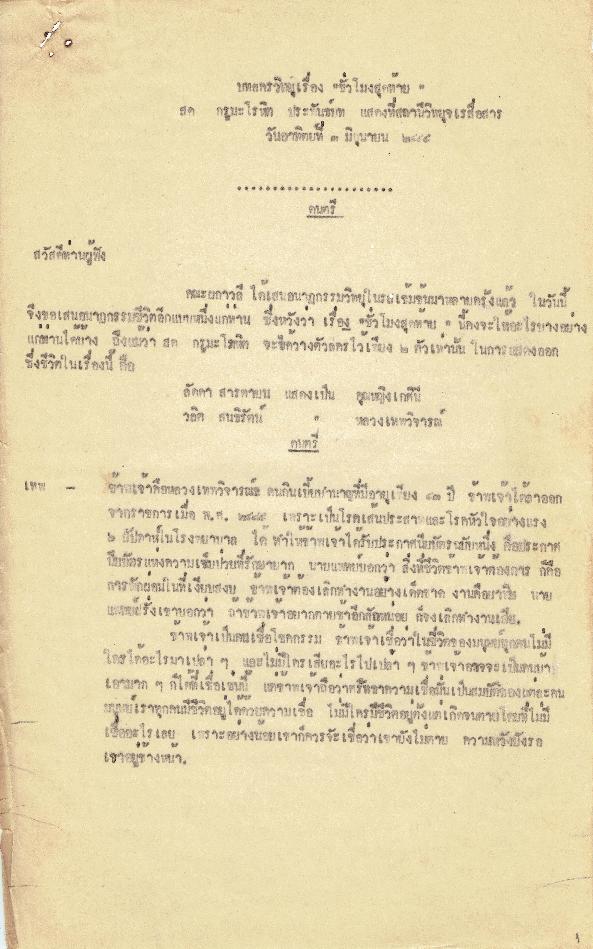 บทละครวิทยุเรื่อง "ชั่วโมงสุดท้าย "
สด กูรมะโรหิต ประพันธ์บท แสดงที่สถานีวิทยุจเรสื่อสาร
วันอาทิตย์ที่ ๓ มิถุนายน ๒๔๙๙
ดนตรี
สวัสดีท่านผู้ฟัง
คณะยุภาวลี ได้เสนอนาฏกรรมวิทยุในรสเข้มข้นมาหลายครั้งแล้ว ในวันนี้
จึงขอเสนอนาฏกรรมชีวิตอีกแบบหนึ่งแก่ท่าน ซึ่งหวังว่า เรื่อง "ชั่วโมงสุดท้าย " นี้คงจะให้อะไรบางอย่าง
แก่ท่านได้บ้าง ถึงแม้ว่า สด กูรมะโรหิต จะขีดวางตัวละครไว้เพียง ๒ ตัวเท่านั้น ในการแสดงออก
ซึ่งชีวิตในเรื่องนี้ คือ
ลัดดา สารตายน แสดงเป็น คุณหญิงเกศินี
วลิต สนธิรัตน์ " หลวงเทพวิจารณ์
ดนตรี
เทพ - ข้าพเจ้าคือหลวงเทพวิจารณ์ คนกินเบี้ยบำนาญที่มีอายุเพียง ๔๓ ปี ข้าพเจ้าได้ลาออก
จากราชการเมื่อ พ.ศ. ๒๔๙๕ เพราะเป็นโรคเส้นประสาทและโรคหัวใจอย่างแรง
๖ สัปดาห์ในโรงพยาบาล ได้ ทำให้ข้าพเจ้าได้รับประกาศนียบัตรฉบับหนึ่ง คือประกาศ
นียบัตรแห่งความเจ็บป่วยที่รักษายาก นายแพทย์บอกว่า สิ่งที่ชีวิตข้าพเจ้าต้องการ ก็คือ
การพักผ่อนในที่เงียบสงบ ข้าพเจ้าต้องเลิกทำงานอย่างเด็ดขาด งานคือยาพิษ นาย
แพทย์ฝรั่งเขาบอกว่า ถ้าข้าพเจ้าอยากตายช้าอีกสักหน่อย ก็จงเลิกทำงานเสีย.
ข้าพเจ้าเป็นคนเชื่อโชคกรรม ข้าพเจ้าเชื่อว่าในชีวิตของมนุษย์ทุกคนไม่มี
ใครได้อะไรมาเปล่า ๆ และไม่มีใครเสียอะไรไปเปล่า ๆ ข้าพเจ้าอาจจะเป็นคนบ้า
เอามาก ๆ ก็ได้ที่เชื่อเช่นนี้ แต่ข้าพเจ้าถือว่าศรัทธาความเชื่อนั้นเป็นสมบัติของแต่ละคน
มนุษย์เราทุกคนมีชีวิตอยู่ได้ด้วยความเชื่อ ไม่มีใครมีชีวิตอยู่ตั้งแต่เกิดจนตายโดยที่ไม่มี
เชื่ออะไรเลย เพราะอย่างน้อยเขาก็ควรจะเชื่อว่าเขายังไม่ตาย ความหวังยังรอ
เขาอยู่ข้างหน้า.